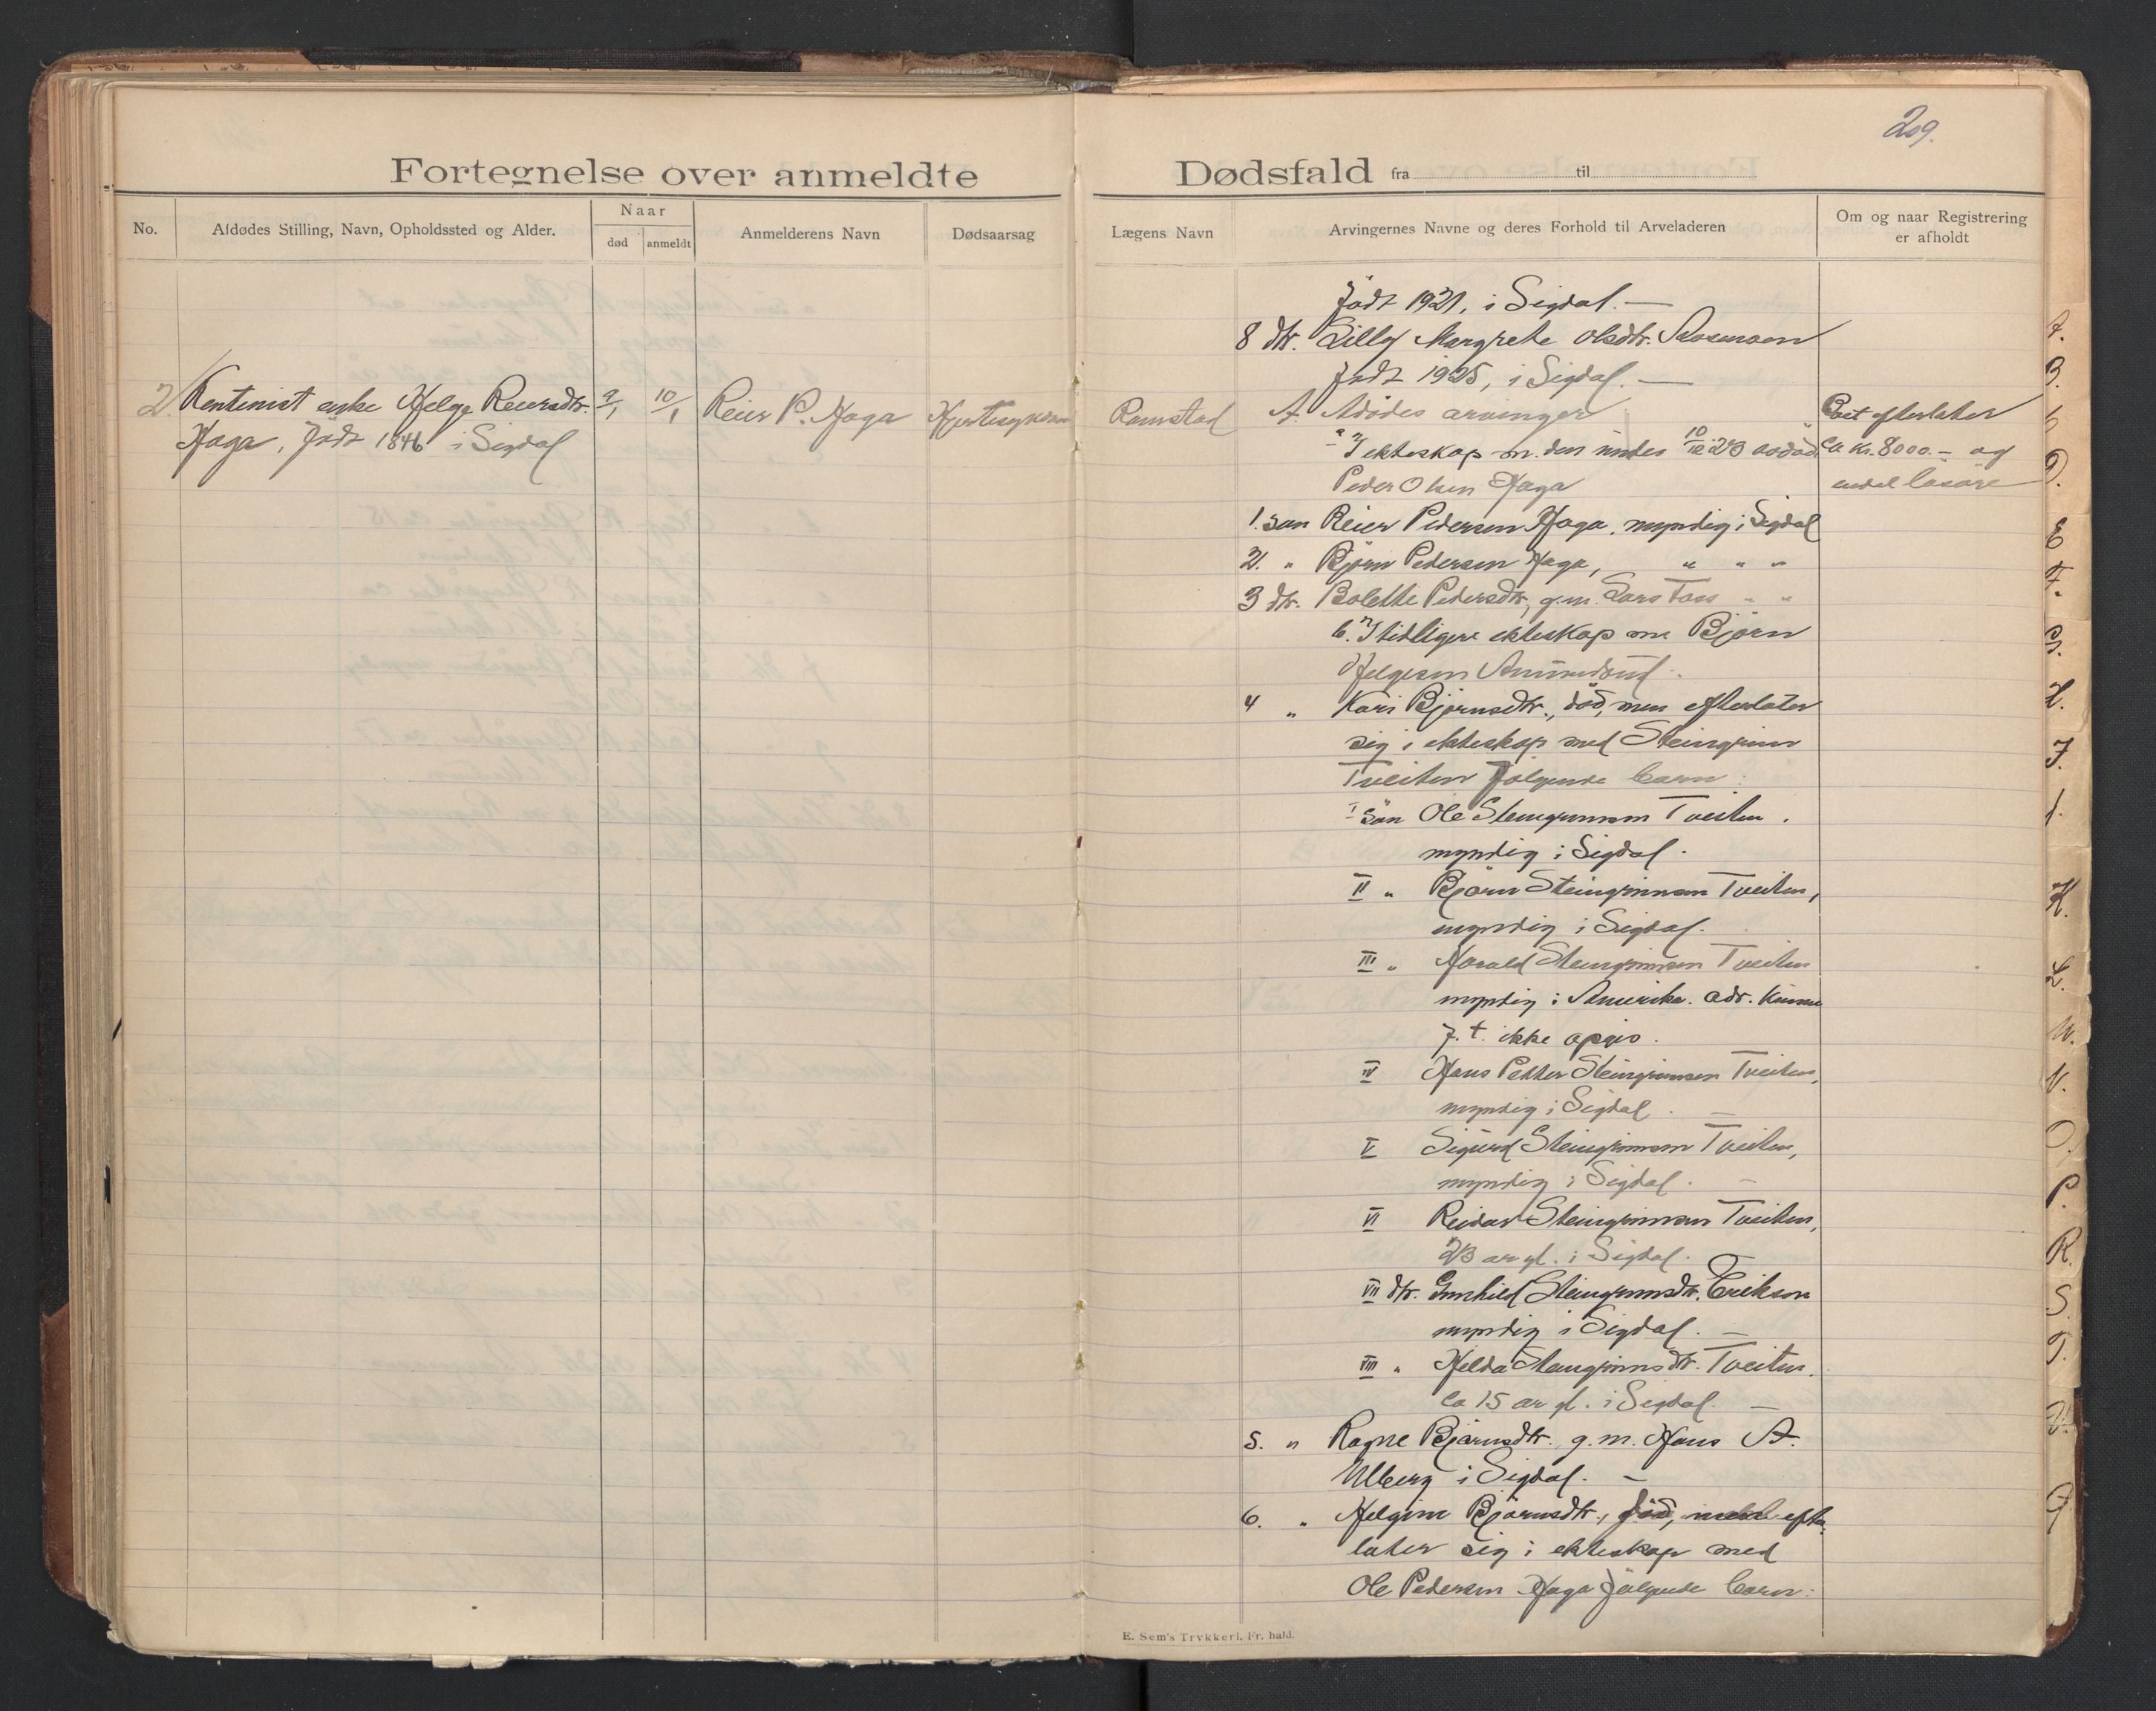 209.
Fortegnelse over anmeldte Dødsfald fra til
No.
Afdødes Stilling, Navn, Opholdssted og Alder.
Naar
død anmeldt
Anmelderens Navn
Dødsaarsag
Lægens Navn
Arvingernes Navne og deres Forhold til Arveladeren
Om og naar Registrering
er afholdt
født 1921, i Sigdal. —
8 dtr. Lilly Margrete Olsdtr.
født 1925, i Sigdal. —
2 Rentenist enke Helge Reiersdtr.
Haga, født 1846 i Sigdal
9/1
10/1
Reier P. Haga
Ramstad
A. Avdødes arvinger
a I ekteskap m. den under 10/12 23 avdøde
Peder Olsen Haga
1. søn Reier Pedersen Haga, myndig i Sigdal
2. " Bjørn Pedersen Haga, " " "
3 dtr. Bolette Pedersdtr, g.m. Lars " "
b. I tidligere ekteskap me Bjørn
Helgesen
4 " Kari Bjørnsdtr., død, men efterlater
sig i ekteskap med Steingrim
Tveiten følgende barn:
I søn Ole Steingrimsen Tveiten.
myndig i Sigdal.
II " Bjørn Steingrimsen Tveiten,
myndig i Sigdal.
III " Harald Steingrimsen Tveiten
myndig i Amerika. adr. kunne
f. t. ikke opgis.
IV Hans Petter Steingrimsen Tveiten,
myndig i Sigdal. —
V Sigurd Steingrimsen Tveiten,
myndig i Sigdal. —
VI Reidar Steingrimsen Tveiten,
i Sigdal. —
VII dtr. Gunhild Steingrimsdtr. Erikson
myndig i Sigdal. —
VIII " Helda Steingrimsdtr. Tveiten.
ca 15 år gl. i Sigdal. —
5. " Ragne Bjørnsdtr. g.m. Hans A.
Ulberg i Sigdal. —
6. " Helgine Bjørnsdtr., død, men efter
later sig i ekteskap med
Ole Pedersen Haga følgende barn:
Boet efterlater
ca kr. 8000.— og
endel løsøre
E. Sem's Trykkeri, Fr. hald.
A.
B.
D.
E
F.
G.
H.
I.
J.
K.
L.
M.
N.
O.
P.
R.
S.
T.
Ø